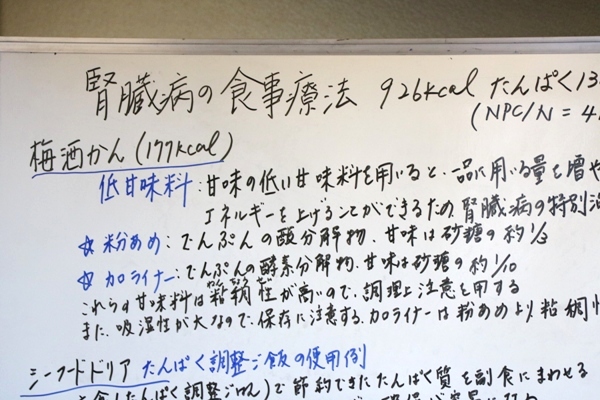 腎臓病の食事療法 926kcal たんぱく13
(NPC/N = 4
梅酒かん (177kcal)
低甘味料：甘味の低い甘味料を用いると、一品に用いる量を増や
エネルギーを上げることができるため、腎臓病の特別治
☆粉あめ：でんぷんの酸分解物、甘味は砂糖の約1/3
☆カロライナー：でんぷんの酵素分解物、甘味は砂糖の約1/10
これらの甘味料は粘稠性が高いので、調理上注意を用する
また、吸湿性が大なので、保存に注意する。カロライナーは粉あめより粘稠性
シーフードドリア たんぱく調整ご飯の使用例
主食(たんぱく調整ごはん)で節約できたたんぱく質を副食にまわせる